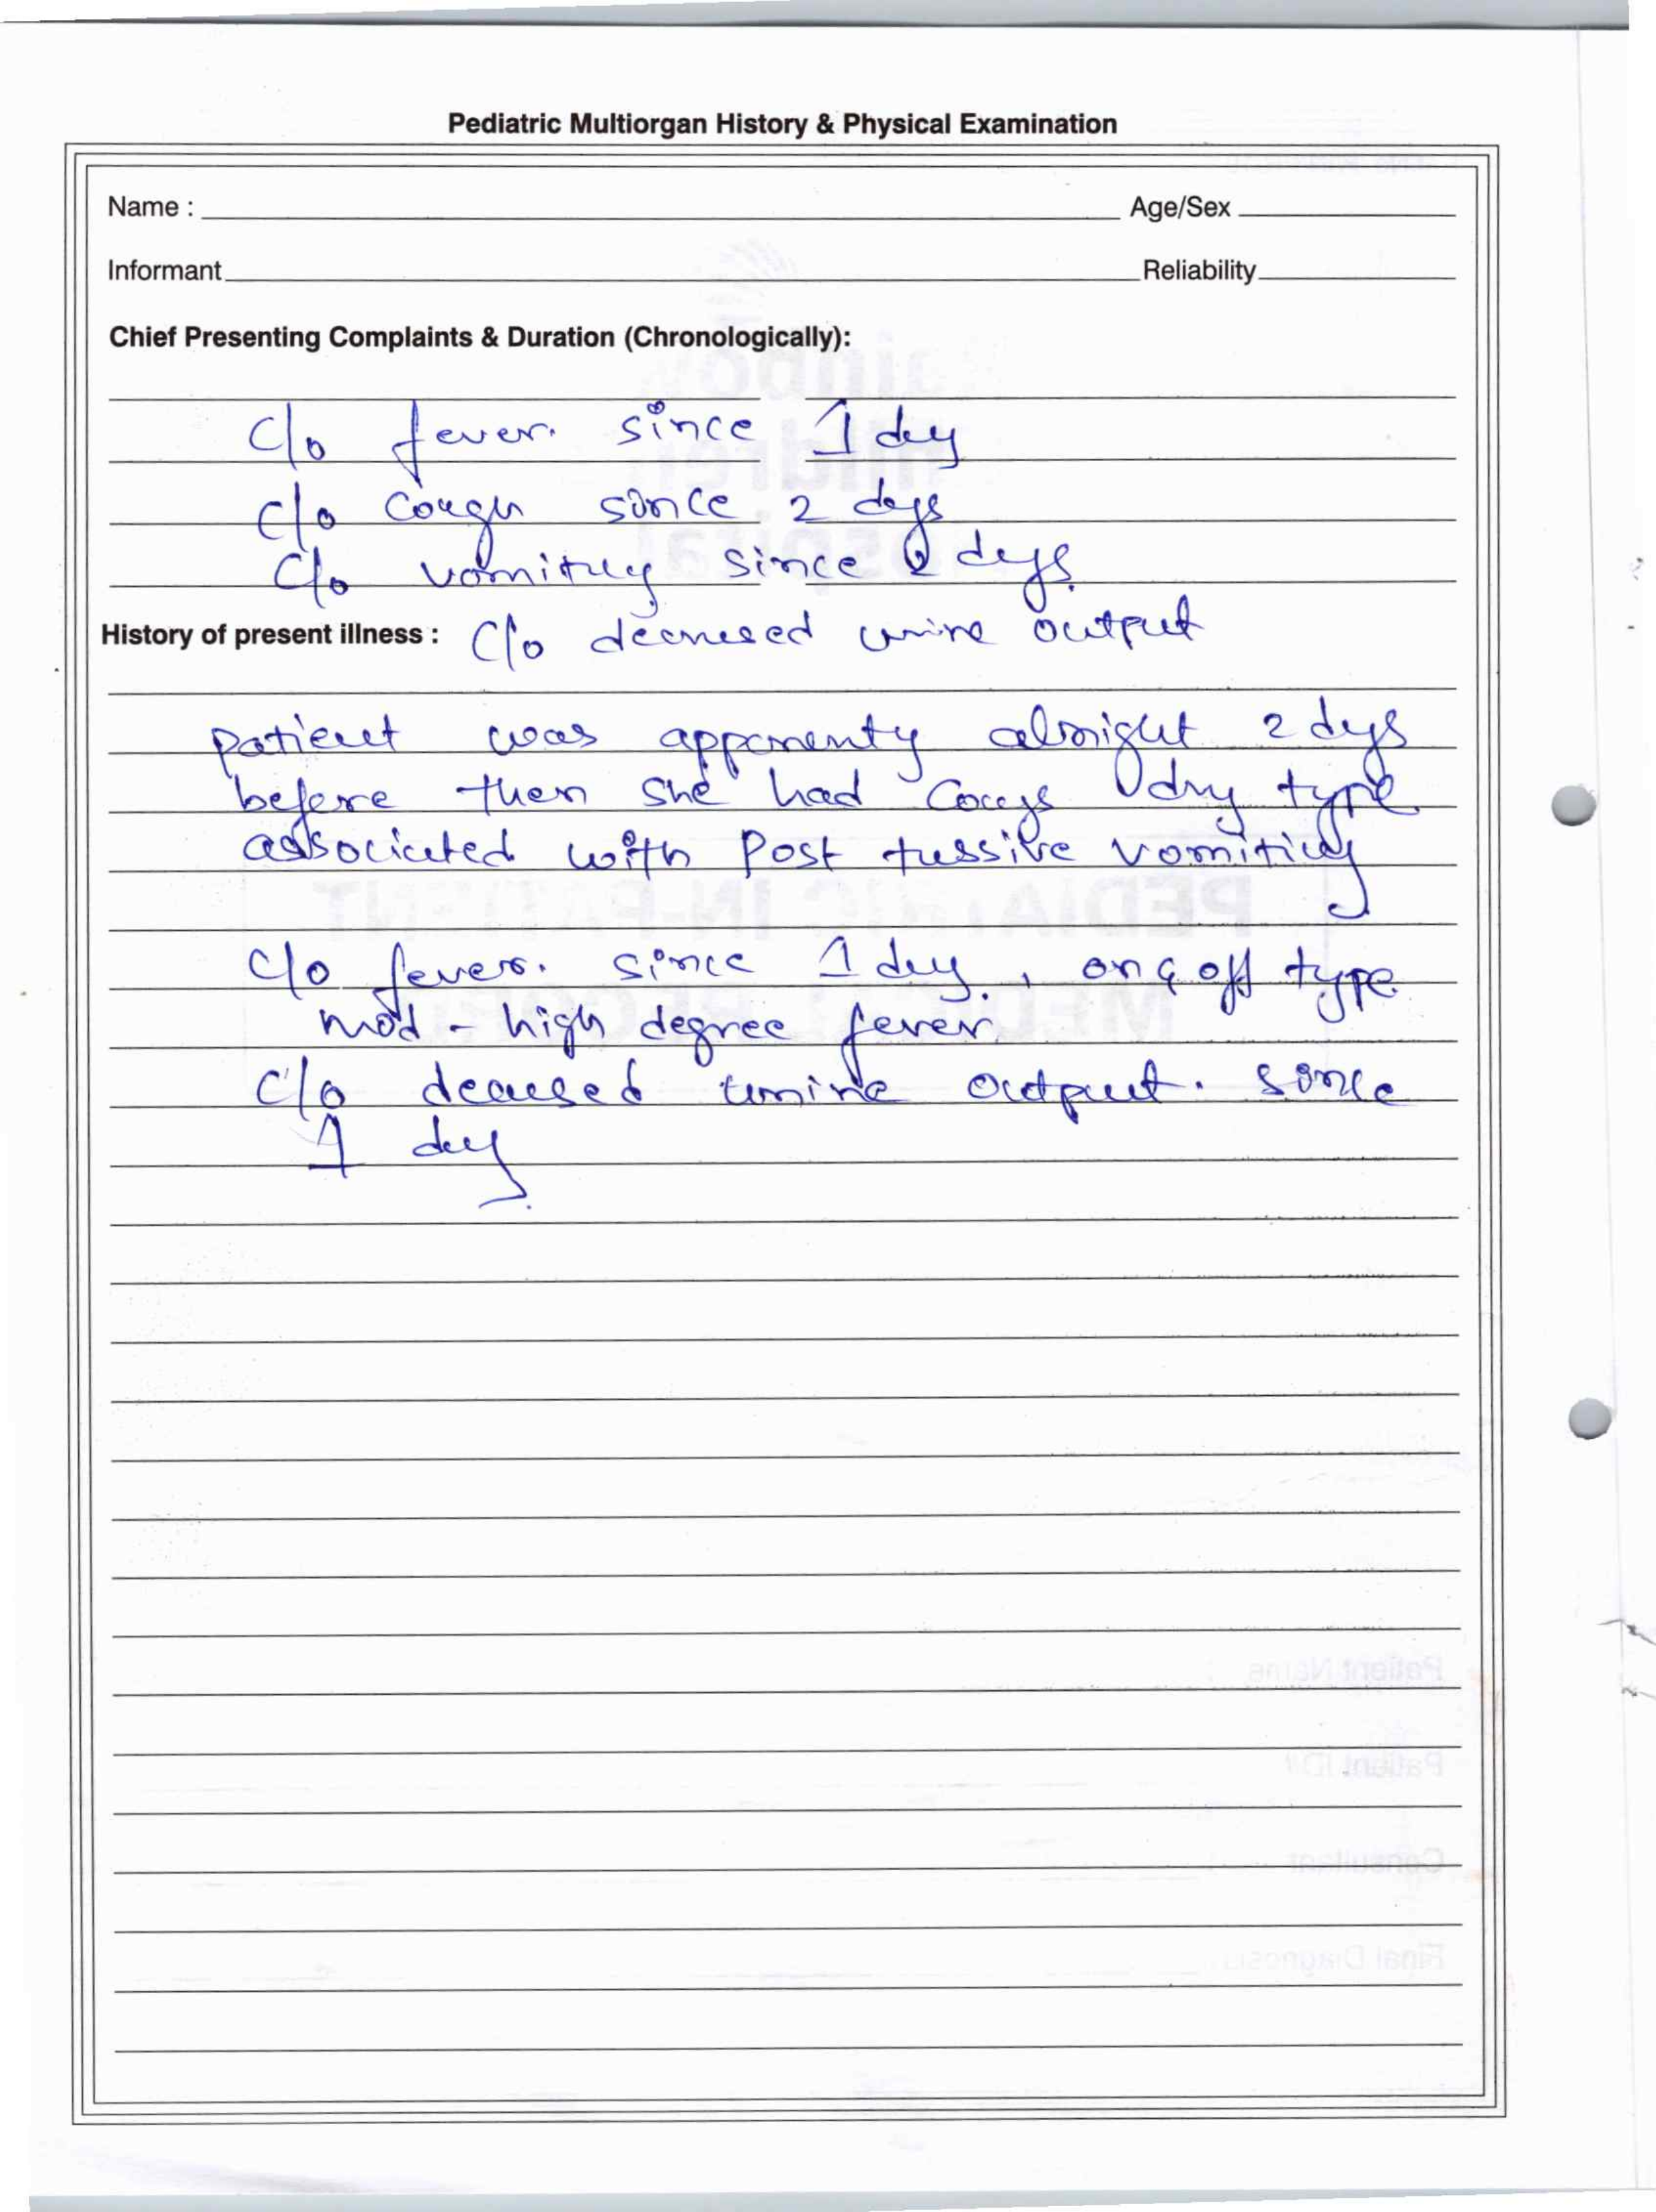 Pediatric Multiorgan History & Physical Examination
Name : Age/Sex
Informant Reliability
Chief Presenting Complaints & Duration (Chronologically):
C/o fever. since 1 day
C/o cough since 2 days
C/o vomiting since 2 days.
History of present illness : C/o decreased urine output
patient was apparenty alright 2 days
before then she had cough dry type
associated with Post tussive vomiting
C/o fever. since 1 day, on & off type
mod - high degree fever.
C/o decreased urine output. since
1 day.
Patient Name :
Patient ID#
Consultant
Final Diagnosis